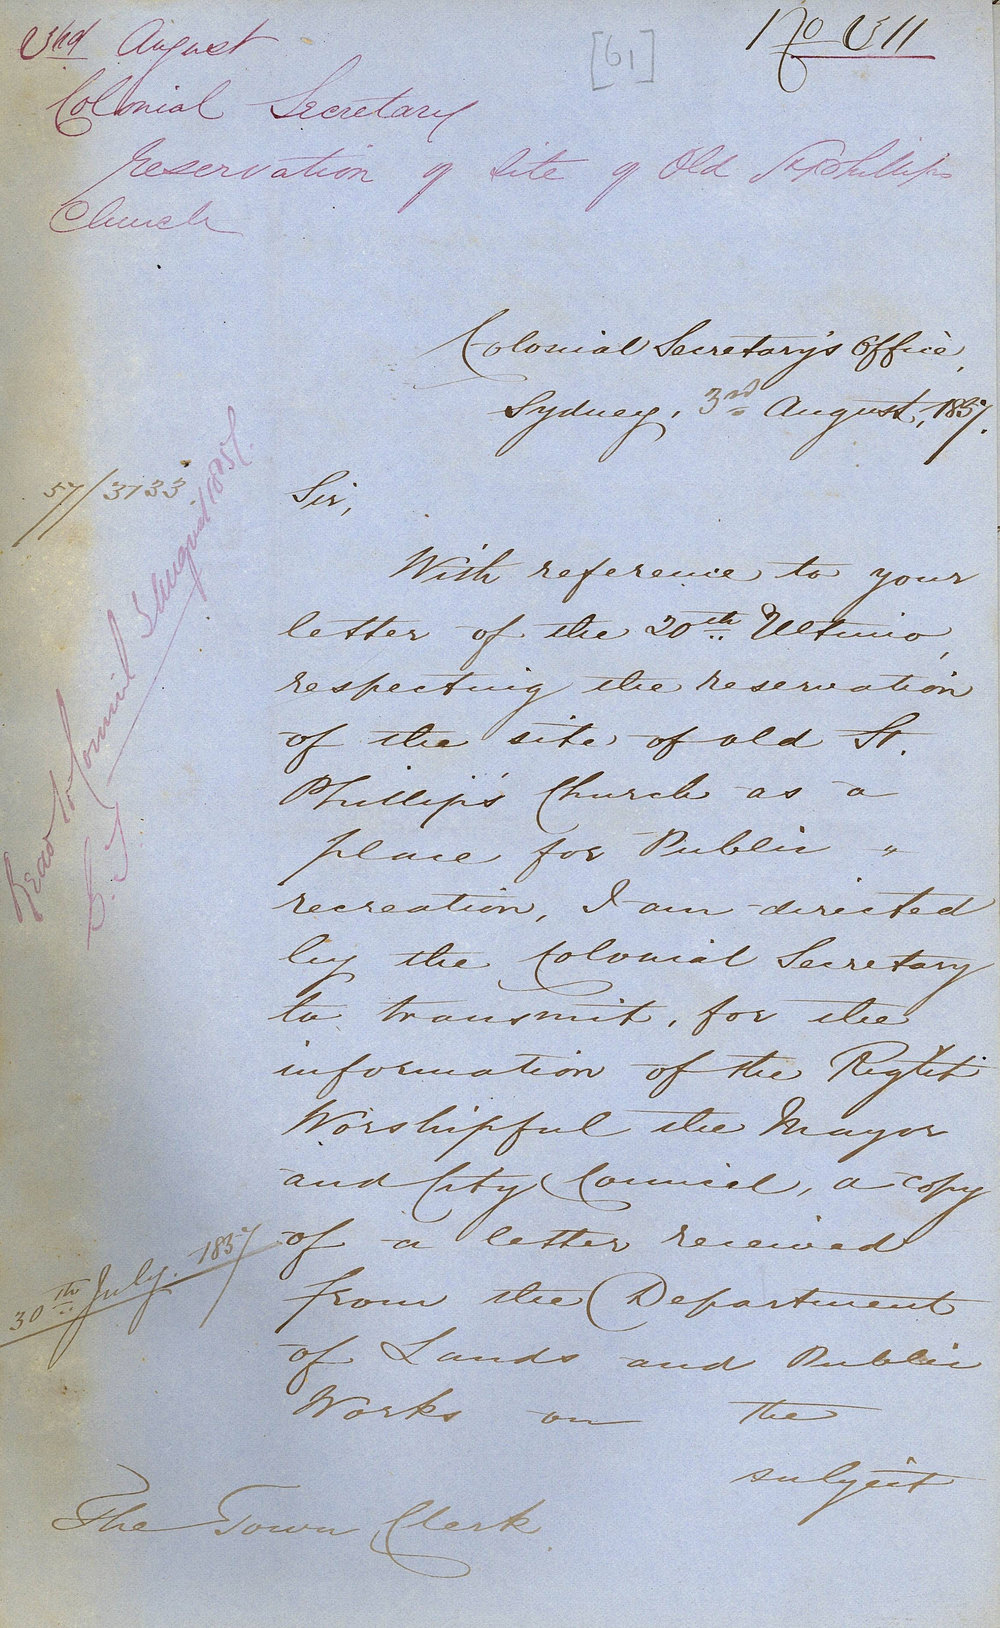 3rd August
No 311
[61]
Colonial Secretary
Reservation of site of Old St Phillips
Church
Colonial Secretary's Office,
Sydney, 3rd August, 1857.
57/3133.
Sir,
With reference to your
letter of the 20th Ultimo,
respecting the reservation
of the site of old St.
Phillip's Church as a
place for Public "
recreation, I am directed
by the Colonial Secretary
to transmit, for the
information of the Right
Worshipful the Mayor
and City Council, a copy
30th July. 1857
of a letter received
from the Department
of Lands and Public
Works on the
subject
The Town Clerk
Read to Council 3 August 1857